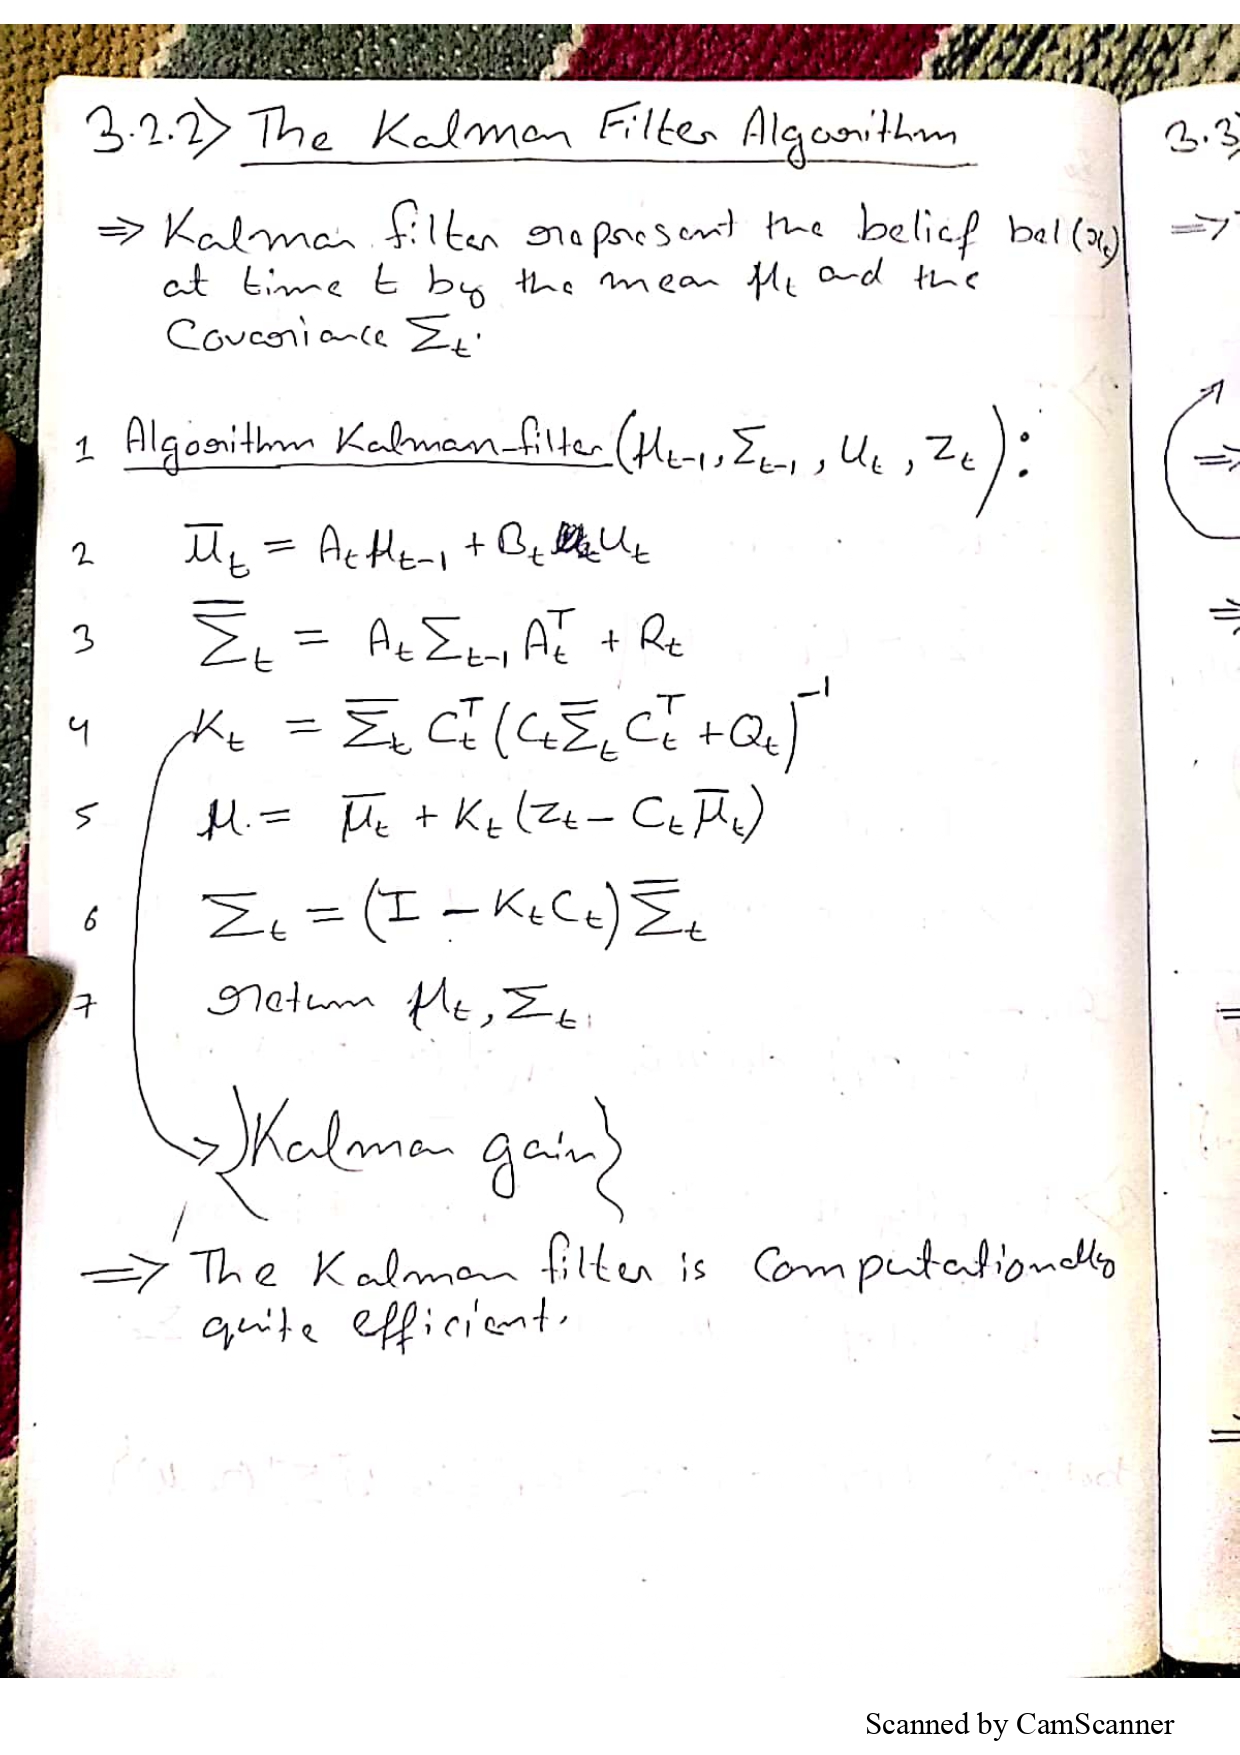 3.2.2) The Kalman Filter Algorithm
⇒ Kalman filter represent the belief bel(xₜ)
at time t by the mean μₜ and the
Covariance Σₜ.
1 Algorithm Kalman-filter(μₜ₋₁, Σₜ₋₁, uₜ, zₜ):
2 μ̅ₜ = Aₜ μₜ₋₁ + Bₜ uₜ
3 Σ̅ₜ = Aₜ Σₜ₋₁ Aₜᵀ + Rₜ
4 Kₜ = Σ̅ₜ Cₜᵀ (Cₜ Σ̅ₜ Cₜᵀ + Qₜ)⁻¹
5 μ. = μ̅ₜ + Kₜ (zₜ − Cₜ μ̅ₜ)
6 Σₜ = (I − Kₜ Cₜ) Σ̅ₜ
7 return μₜ, Σₜ
→ {Kalman gain}
⇒ The Kalman filter is Computationally
quite efficient.
3.3)
⇒
⇒
⇒
=
⇒
Scanned by CamScanner